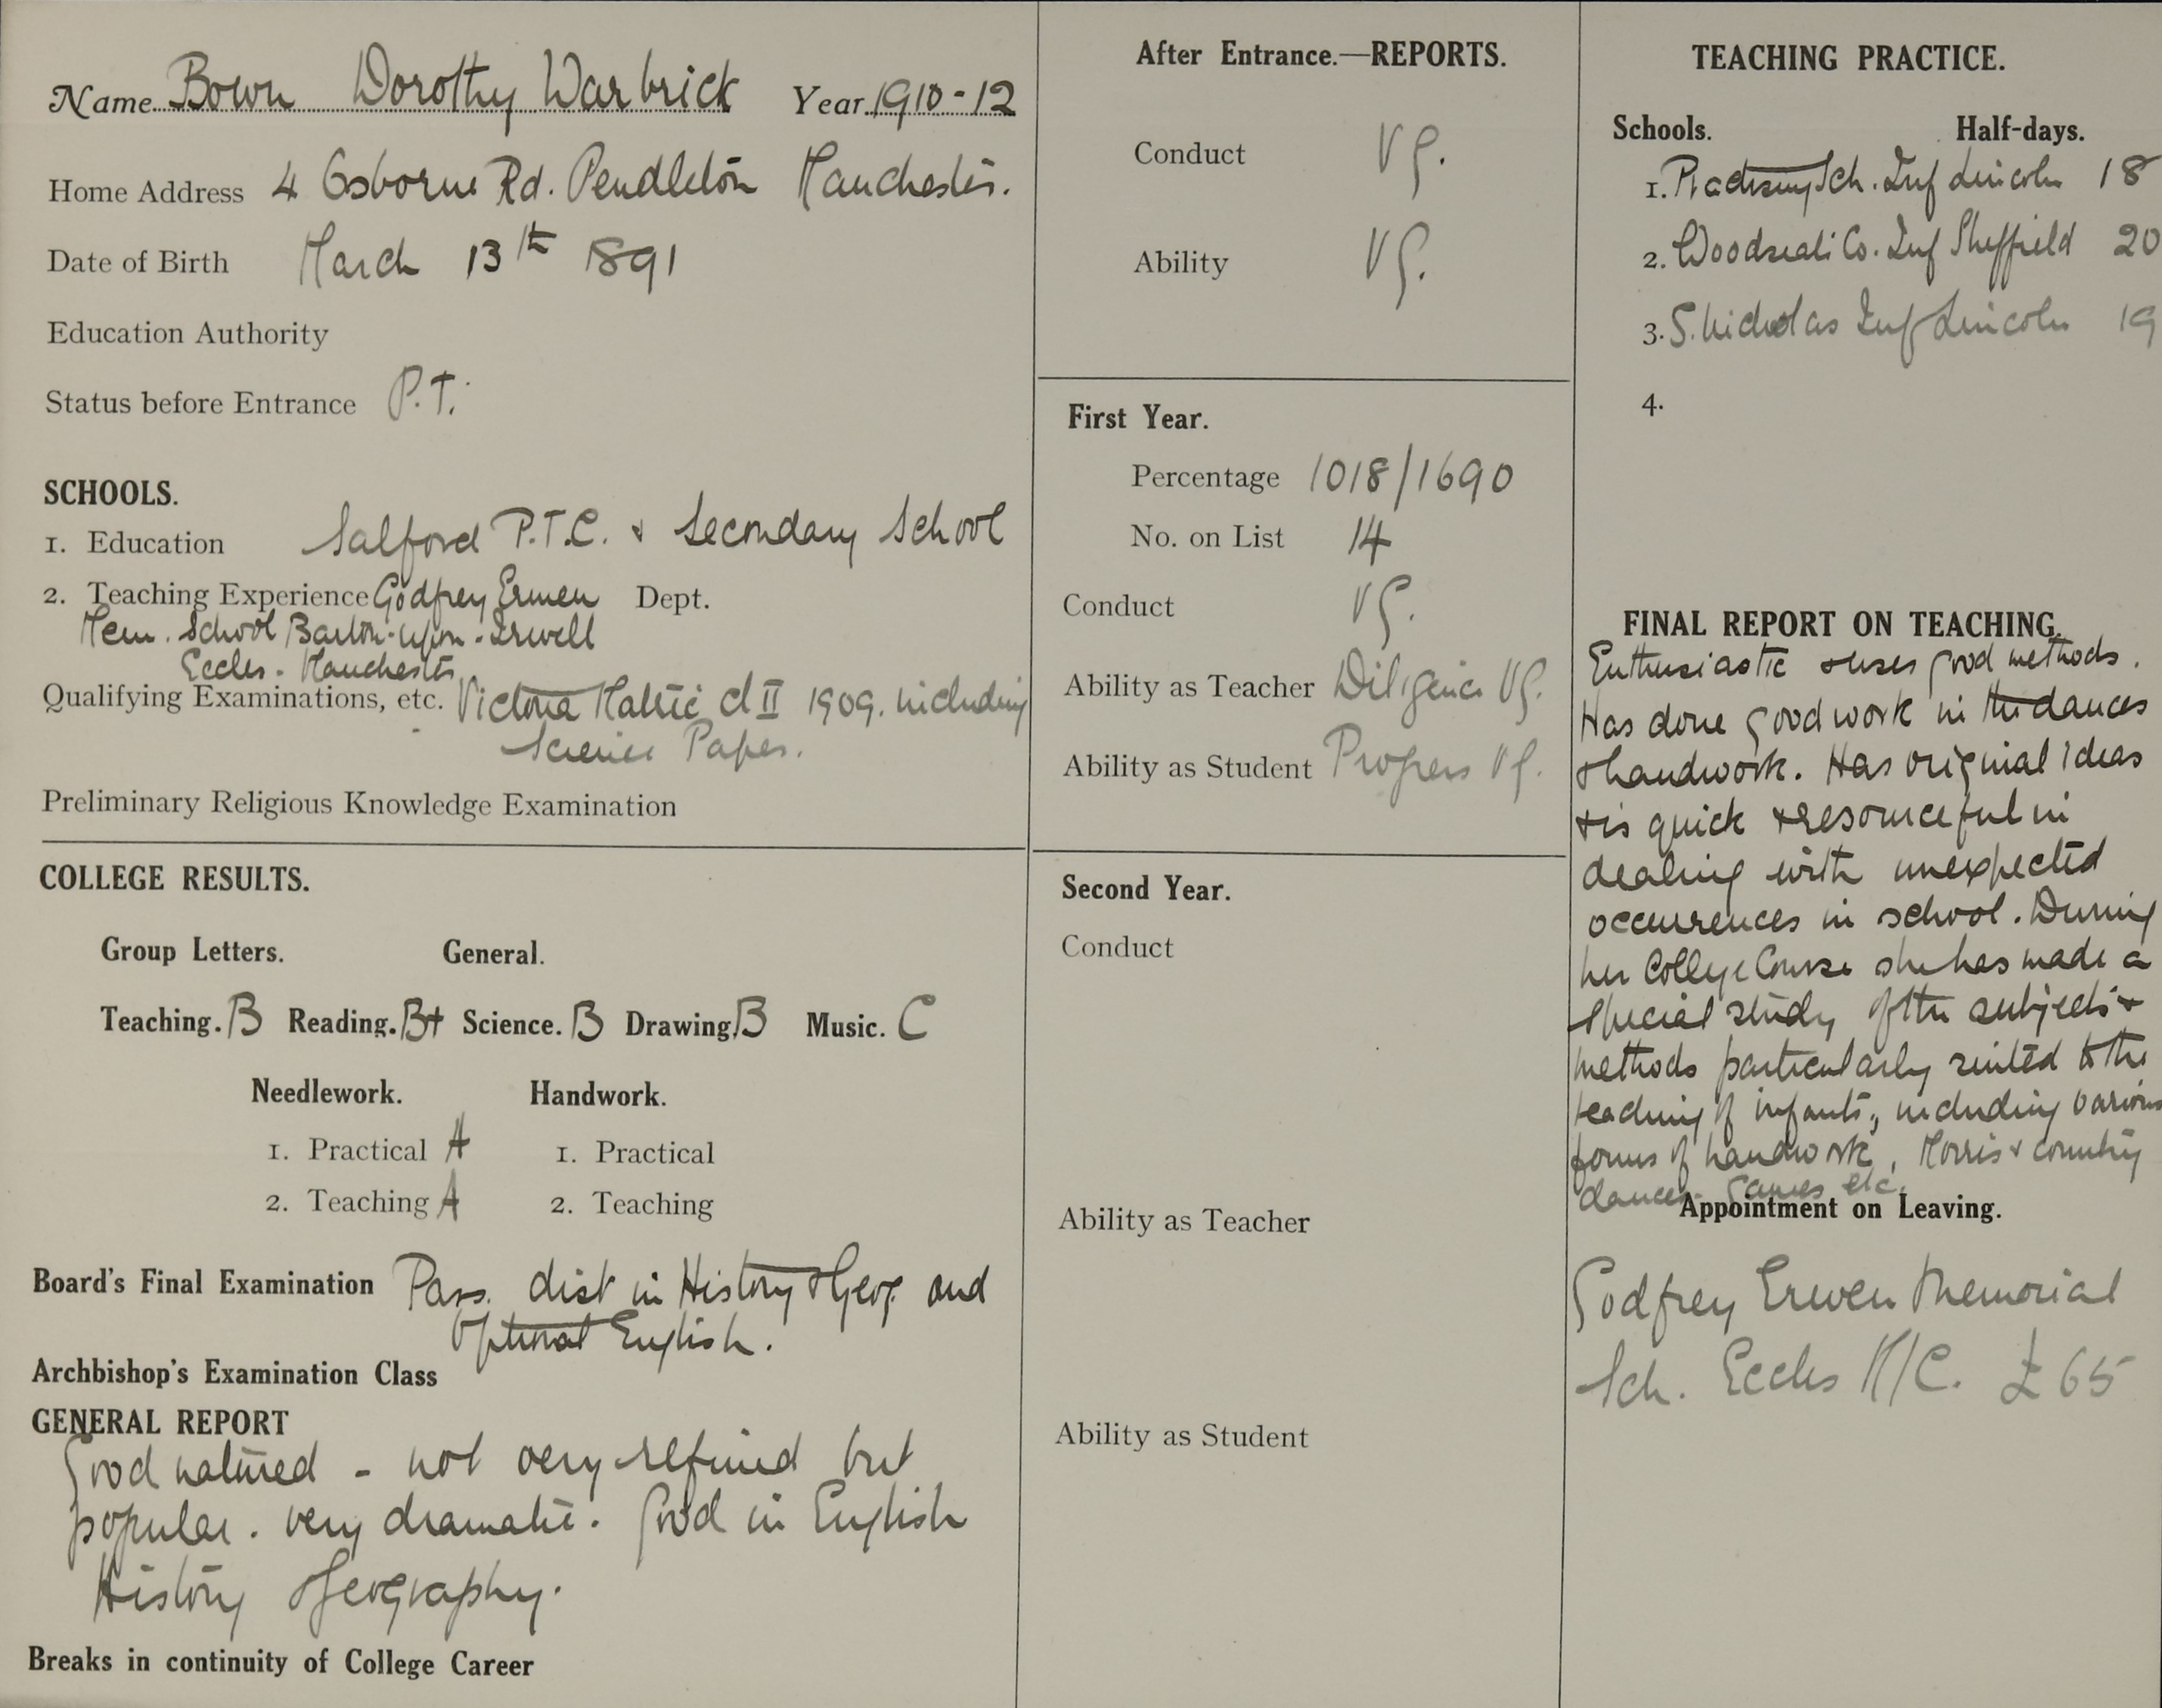 Name Bown Dorothy Warbrick Year 1910-12
Home Address 4 Osborne Rd. Pendleton Manchester.
Date of Birth March 13th 1891
Education Authority
Status before Entrance P.T.
SCHOOLS.
1. Education Salford P.T.C. & Secondary School
2. Teaching Experience Godfrey Ermen Dept.
Mem. School Barton-upon-Irwell
Eccles - Manchester
Qualifying Examinations, etc. Victoria Matric cl II 1909. including
Science Paper.
Preliminary Religious Knowledge Examination
COLLEGE RESULTS.
Group Letters. General.
Teaching. B Reading. B+ Science. B Drawing. B Music. C
Needlework. Handwork.
1. Practical A 1. Practical
2. Teaching A 2. Teaching
Board's Final Examination Pass. dist in History & Geog. and
Optional English.
Archbishop's Examination Class
GENERAL REPORT
Good natured - not very refined but
popular. very dramatic. Good in English
History & Geography.
Breaks in continuity of College Career
After Entrance.—REPORTS.
Conduct VG.
Ability VG.
First Year.
Percentage 1018/1690
No. on List 14
Conduct VG.
Ability as Teacher Diligence VG.
Ability as Student Progress VG.
Second Year.
Conduct
Ability as Teacher
Ability as Student
TEACHING PRACTICE.
Schools. Half-days.
1. Practising Sch. Inf Lincoln 18
2. Woodseats Co. Inf Sheffield 20
3. S. Nicholas Inf Lincoln 19
4.
FINAL REPORT ON TEACHING.
Enthusiastic & uses good methods.
Has done good work in the dances
& handwork. Has original ideas
& is quick & resourceful in
dealing with unexpected
occurrences in school. During
her College Course she has made a
special study of the subjects &
methods particularly suited to the
teaching of infants, including various
forms of handwork, Morris & country
dances - Games etc.
Appointment on Leaving.
Godfrey Ermen Memorial
Sch. Eccles M/C. £65